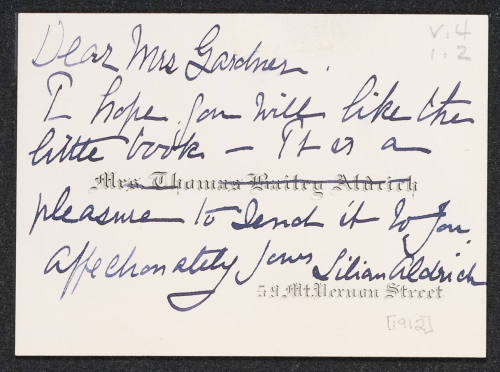 v. 4
1.2
Dear Mrs Gardner.
I hope you will like the
little book – It is a
Mrs. Thomas Bailey Aldrich
pleasure to send it to you.
affectionately yours Lilian Aldrich
59 Mt. Vernon Street
[1912]